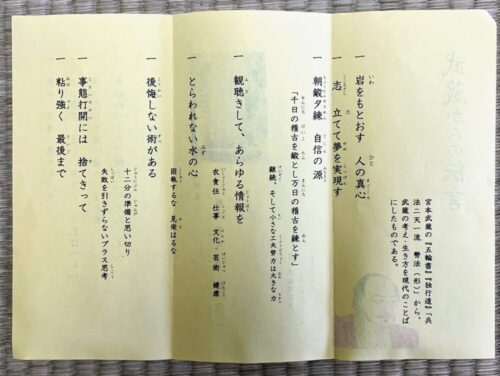 宮本武蔵の『五輪書』『独行道』「兵
法二天一流 勢法(形)」から、
武蔵の考え・生き方を現代のことば
にしたものである。
一 岩をもとおす 人の真心
一 志 立てて夢を実現す
一 朝鍛夕練 自信の源
「千日の稽古を鍛とし万日の稽古を練とす」
継続、そして小さな工夫努力は大きな力
一 観聴きして、あらゆる情報を
衣食住 仕事 文化・芸術 健康
一 とらわれない水の心
固執するな 見栄はるな
一 後悔しない術がある
十二分の準備と思い切り
失敗を引きずらないプラス思考
一 事態打開には 捨てきって
一 粘り強く 最後まで